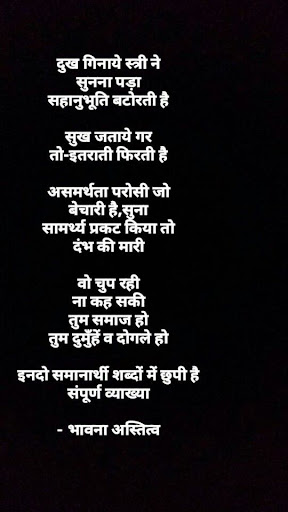 दुख गिनाये स्त्री ने
सुनना पड़ा
सहानुभूति बटोरती है
सुख जताये गर
तो-इतराती फिरती है
असमर्थता परोसी जो
बेचारी है,सुना
सामर्थ्य प्रकट किया तो
दंभ की मारी
वो चुप रही
ना कह सकी
तुम समाज हो
तुम दुमुँहें व दोगले हो
इनदो समानार्थी शब्दों में छुपी है
संपूर्ण व्याख्या
- भावना अस्तित्व